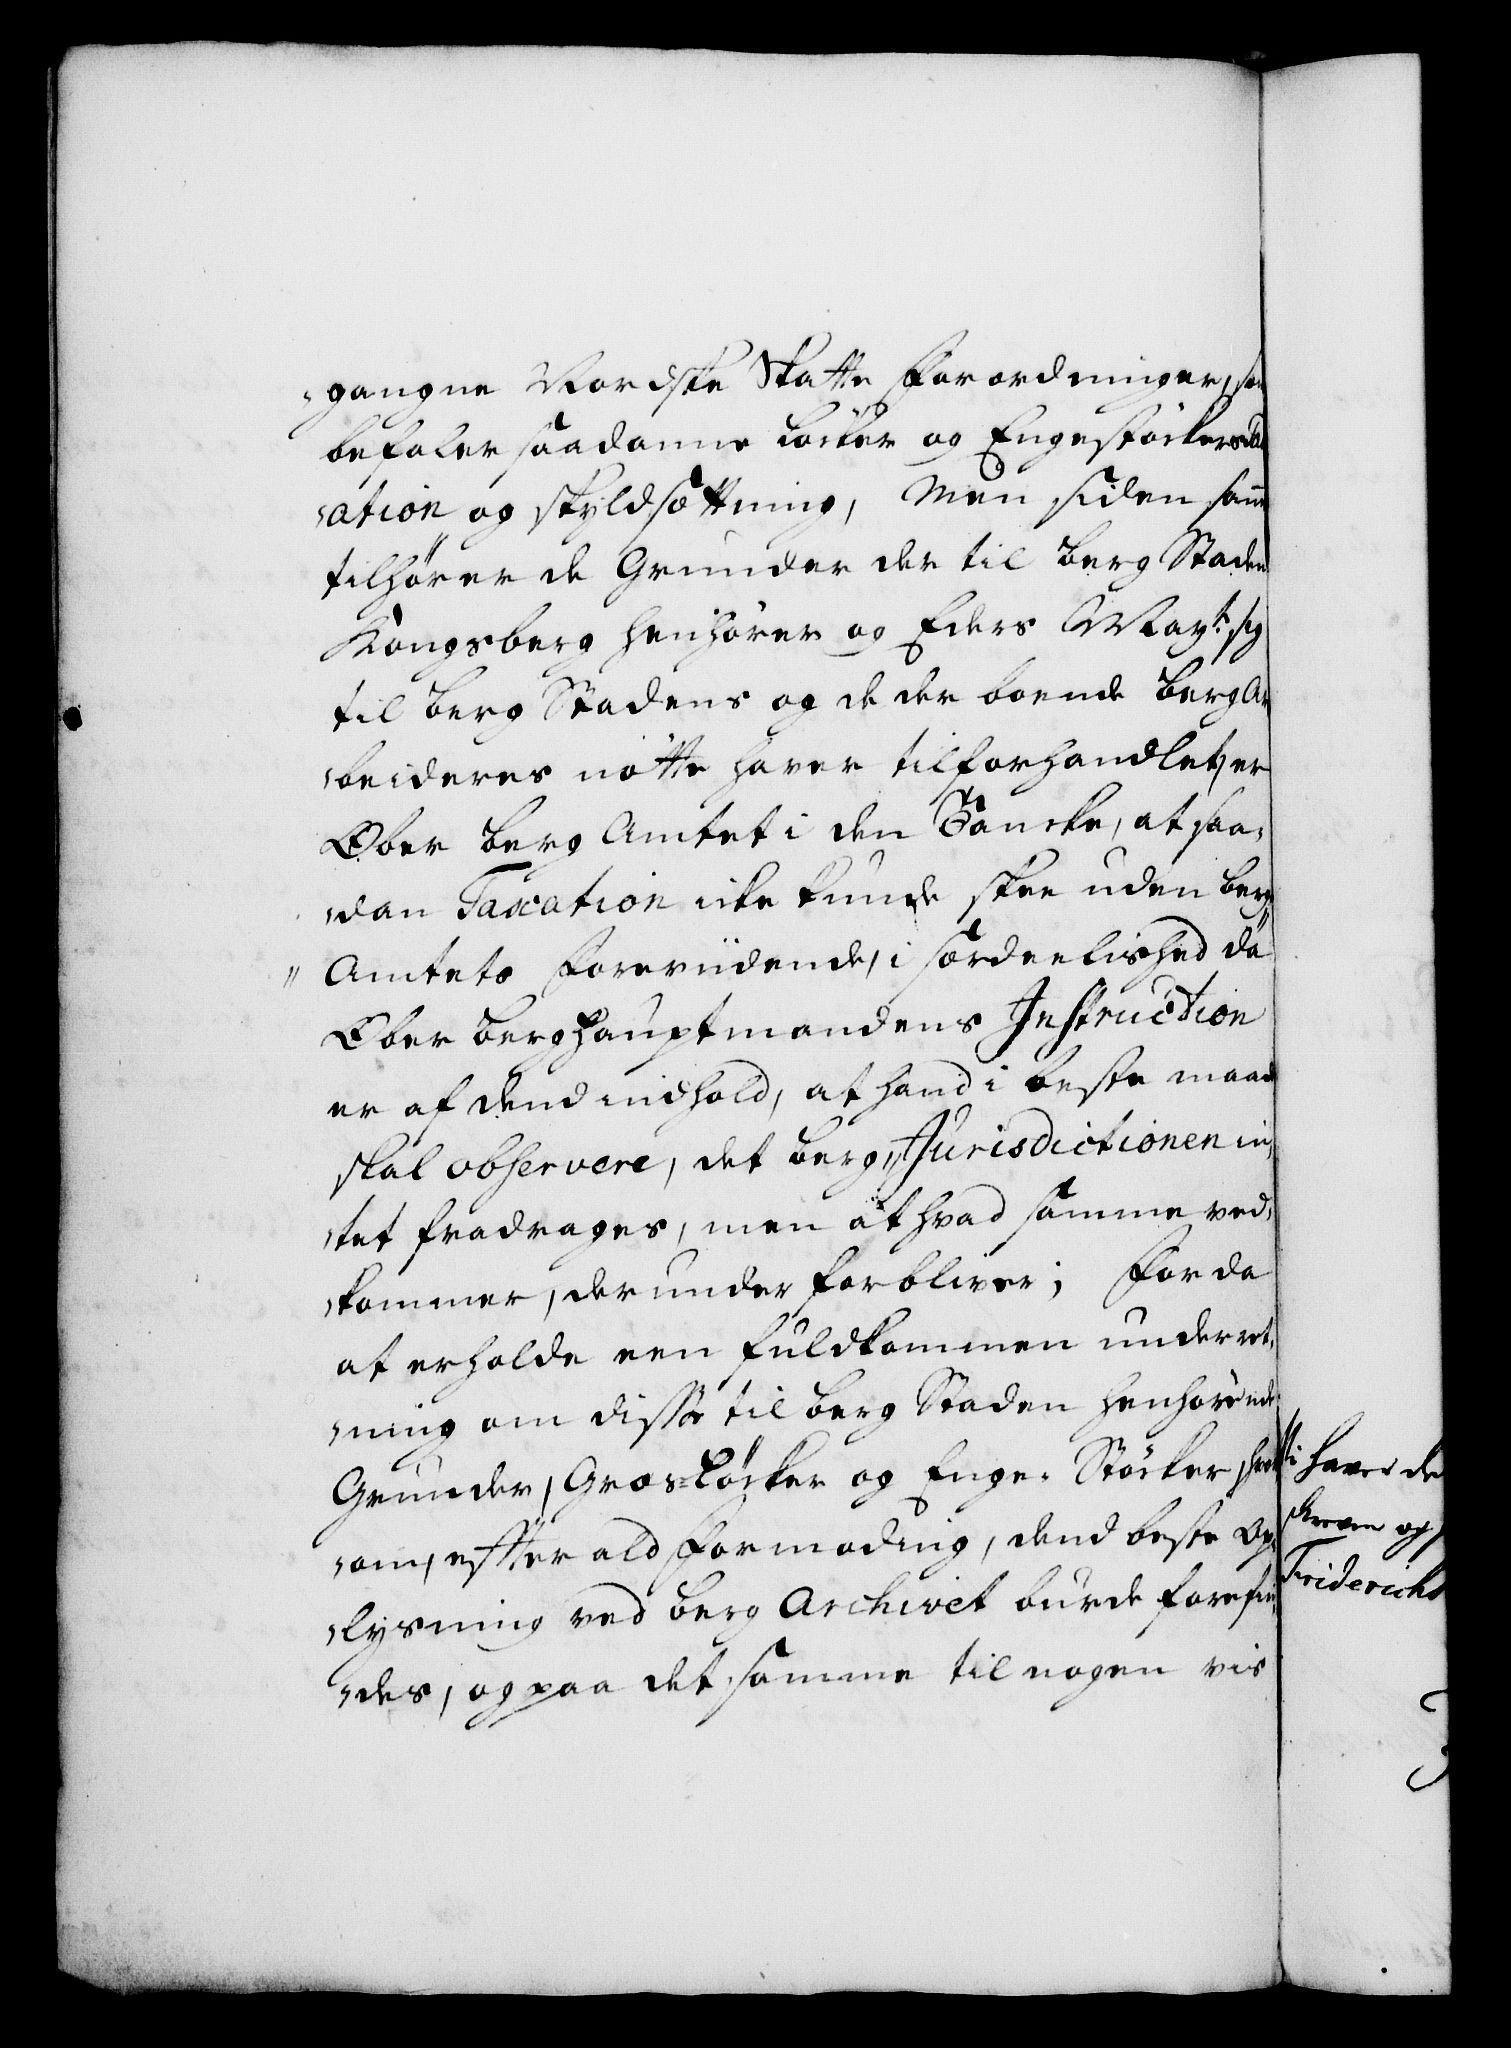 „gangne Nordske Skatte Forordninger, som
befaler saadanne Löcker og Engestöckers Tax
„ation og skyldsættning, Men siden samme
tilhörer de Grunder der til Berg Staden
Kongsberg henhörer og Eders May:t sig
til Berg Stadens og de der boende Berg Ar
„beideres nötte haver tilforhandlet, er
Ober Berg Amtet i den Tancke, at saa„
„dan Taxation icke kunde skee uden Berg„
„Amtets Forevidende, i særdeelished da
Ober Berghauptmandens Instruction
er af dend indhold, at hand i beste maade
skal observere, det Berg„Jurisdictionen in„
„tet fradrages, men at hvad samme ved„
„kommer, derunder forbliver; For da
at erholde een fuldkommen underret„
„ning om disse til Berg Staden henhörende
Grunder, Græs=Löcker og Enge„ Stöcker, hvor
„om, effter ald formoding, dend beste Op„
„lysning ved Berg Archivet burde forefin„
„des, og paa det samme til nogen vis
i haver de
skreven og
Friderichs